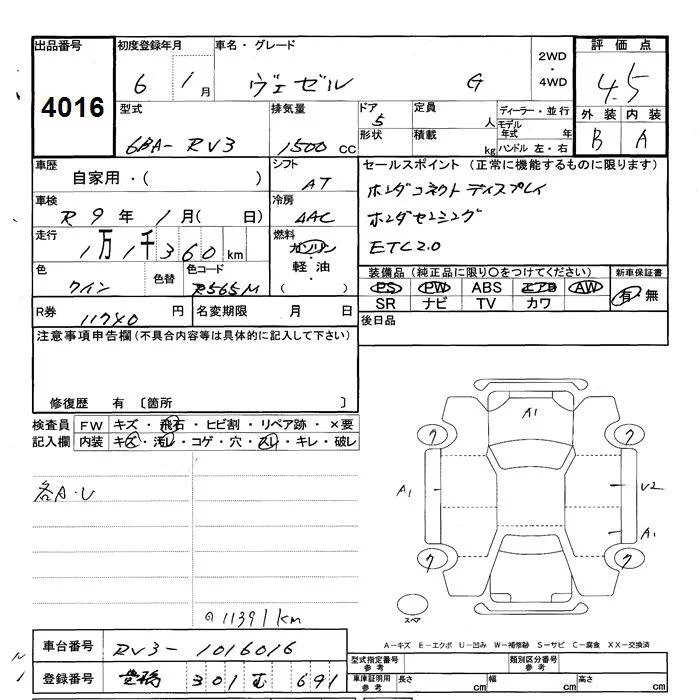 出品番号 初度登録年月 車名・グレード 2WD・4WD 評価点
4016 6 1月 ヴェゼル G 4.5
外装 内装
B A
型式 排気量 ドア 定員 ディーラー・並行
6BA- RV3 1500 cc 5 人 モデル年式 年
形状 積載 kg ハンドル 左・右
車歴 シフト セールスポイント (正常に機能するものに限ります)
自家用・( ) AT ホンダコネクトディスプレイ
車検 冷房
R 9年 1月( 日) AAC ホンダセンシング
走行 燃料
1万1千360km ガソリン・軽油・( ) ETC2.0
色 色替 色コード 装備品(純正品に限り○をつけてください) 新車保証書
ワイン R565M PS PW ABS エアB AW 有・無
SR ナビ TV カワ
R券 名変期限 後日品
11740円 月 日
注意事項申告欄(不具合内容等は具体的に記入して下さい)
修復歴 有 〔箇所 〕
検査員 FW キズ・飛石・ヒビ割・リペア跡・×要
記入欄 内装 キズ・汚レ・コゲ・穴・スレ・キレ・破レ
各A・U
11391km
A1
7 7
A1 U2
A1
7 7
スペア
A-キズ E-エクボ U-凹み W-補修跡 S-サビ C-腐食 XX-交換済
車台番号 RV3- 1016016
型式指定番号 参考 類別区分番号 参考
登録番号 豊橋 301 691
車庫証明用 参考 長さ cm 幅 cm 高さ cm